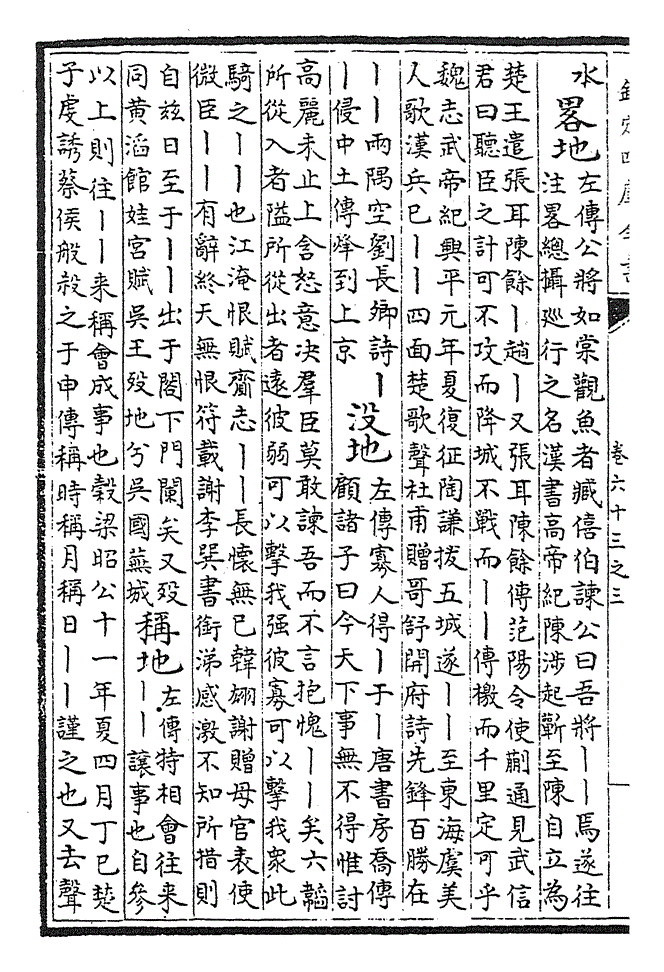 欽定四庫全書
卷六十三之三
水
畧地
左傳公將如棠觀魚者臧僖伯諫公曰吾將丨丨焉遂往
注畧總攝廵行之名漢書高帝紀陳涉起蘄至陳自立為
楚王遣張耳陳餘丨趙丨又張耳陳餘傳范陽令使蒯通見武信
君曰聽臣之計可不攻而降城不戰而丨丨傳檄而千里定可乎
魏志武帝紀興平元年夏復征陶謙拔五城遂丨丨至東海虞美
人歌漢兵已丨丨四面楚歌聲杜甫贈哥舒開府詩先鋒百勝在
丨丨兩隅空劉長卿詩丨
丨侵中土傳烽到上京
没地
左傳寡人得丨于丨唐書房喬傳
顧諸子曰今天下事無不得惟討
高麗未止上含怒意决羣臣莫敢諫吾而不言抱愧丨丨矣六韜
所從入者隘所從出者遠彼弱可以擊我强彼寡可以擊我衆此
騎之丨丨也江淹恨賦齎志丨丨長懷無已韓翃謝贈母官表使
微臣丨丨有辭終天無恨符載謝李巽書銜涕感激不知所措則
自兹日至于丨丨出于閤下門闌矣又殁
同黄滔館娃宫賦吳王殁地兮吳國蕪城
稱地
左傳特相會往来
丨丨讓事也自參
以上則往丨丨来稱會成事也穀梁昭公十一年夏四月丁巳楚
子虔誘蔡侯般殺之于申傳稱時稱月稱日丨丨謹之也又去聲